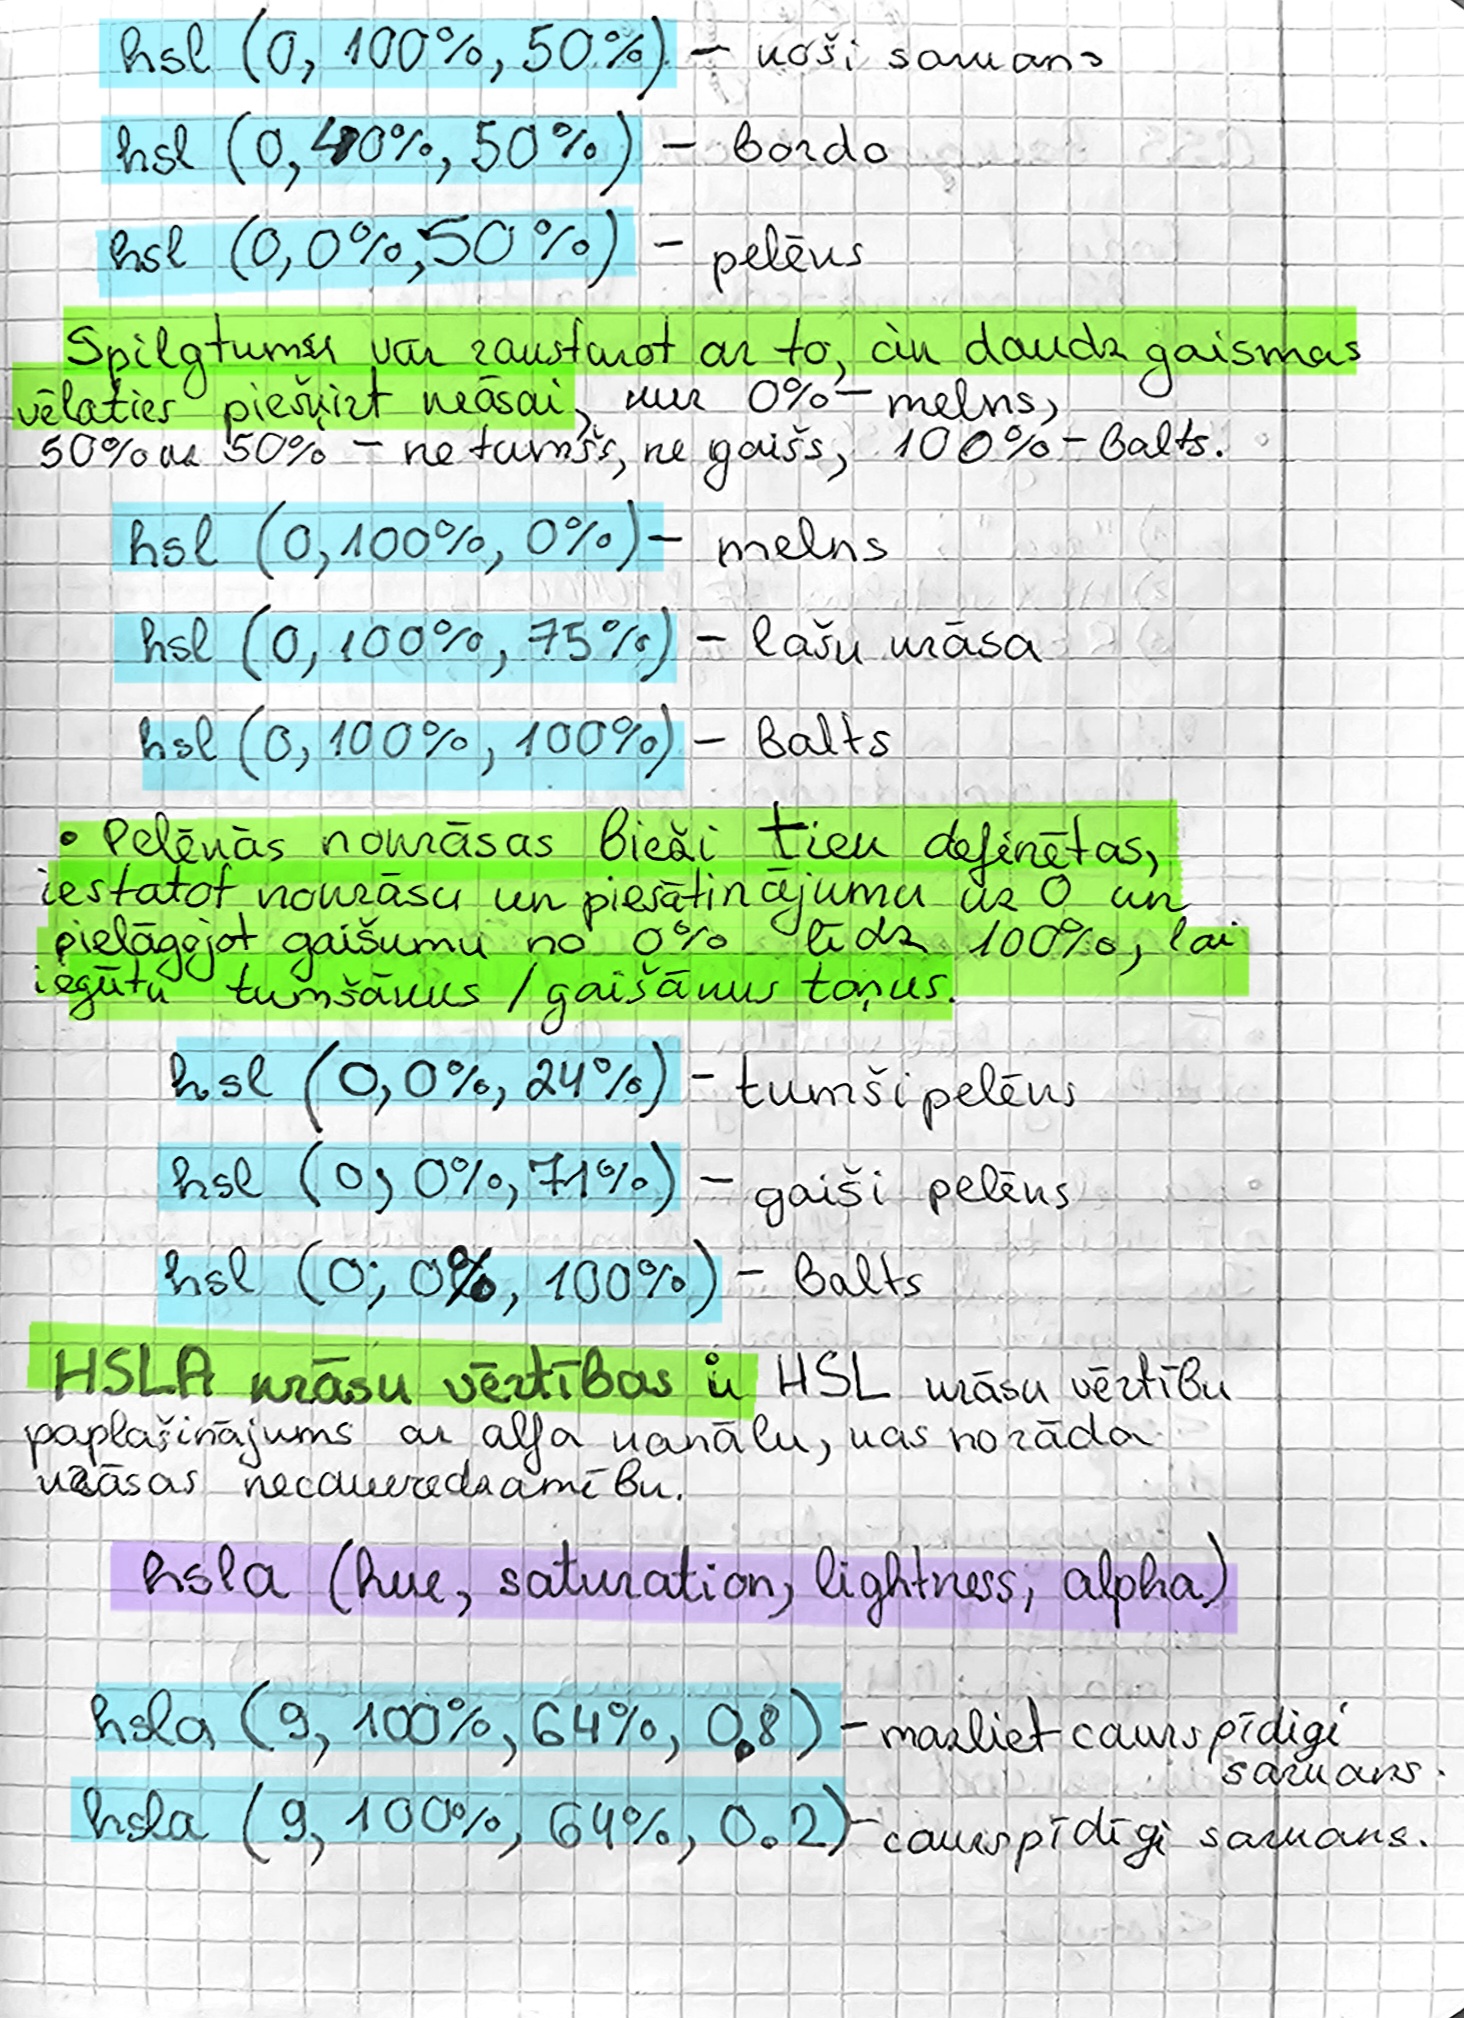 hsl (0, 100%, 50%) – koši sarkans
hsl (0, 40%, 50%) – bordo
hsl (0, 0%, 50%) – pelēks
Spilgtumu var raksturot ar to, cik daudz gaismas
vēlaties piešķirt krāsai, kur 0% – melns,
50% 50% – ne tumšs, ne gaišs, 100% – balts.
hsl (0, 100%, 0%) – melns
hsl (0, 100%, 75%) – lašu krāsa
hsl (0, 100%, 100%) – Balts
• Pelēkās nokrāsas bieži tiek definētas,
iestatot nokrāsu un piesātinājumu uz 0 un
pielāgojot gaišumu no 0% līdz 100%, lai
iegūtu tumšākus / gaišākus toņus.
hsl (0, 0%, 24%) – tumši pelēks
hsl (0, 0%, 71%) – gaiši pelēks
hsl (0; 0%, 100%) – Balts
HSLA krāsu vērtības ir HSL krāsu vērtību
paplašinājums ar alfa kanālu, kas norāda
krāsas necauredzamību.
hsla (hue, saturation, lightness, alpha)
hsla (9, 100%, 64%, 0.8) – mazliet caurspīdīgi
sarkans.
hsla (9, 100%, 64%, 0.2) – caurspīdīgi sarkans.